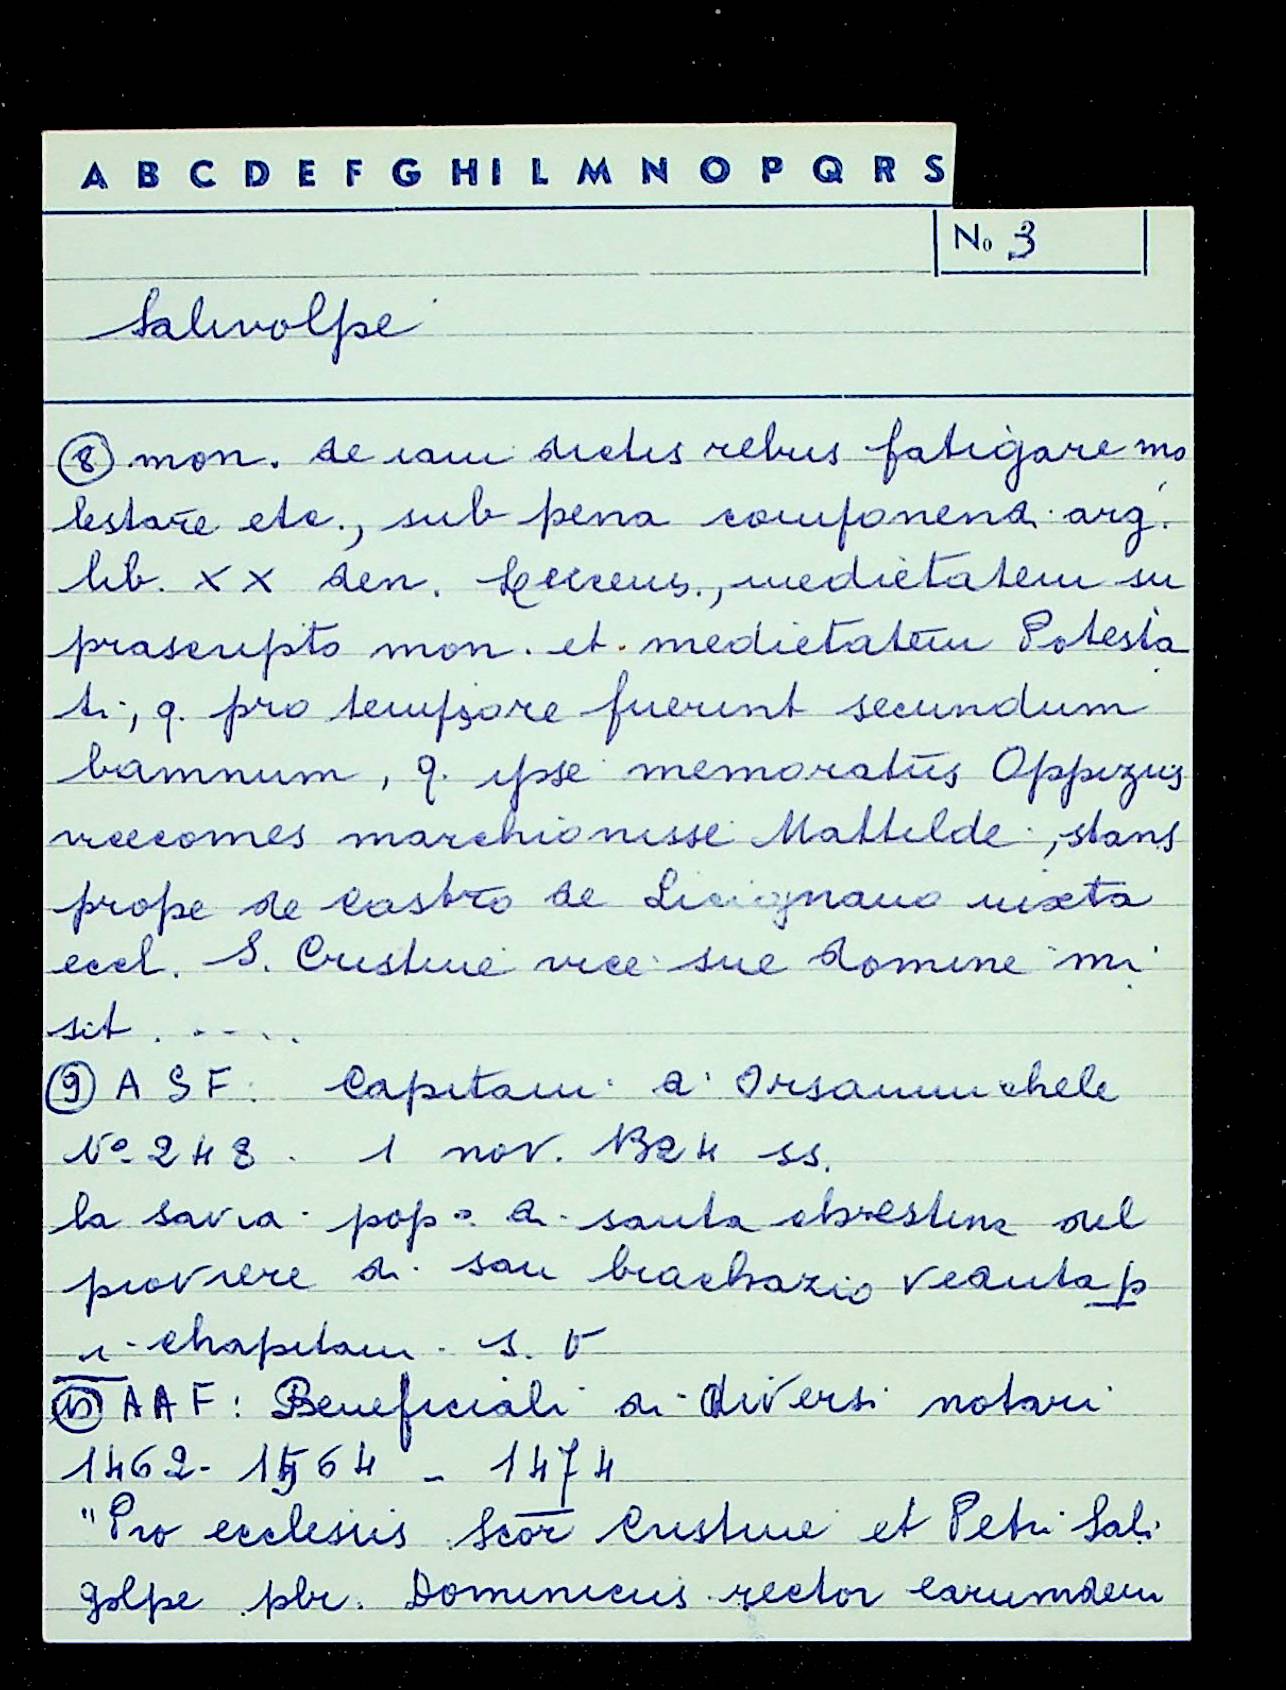 A B C D E F G H I L M N O P Q R S
No 3
Salivolpe
⑧ mon. de iam dictis rebus fatigare mo
lestare etc., sub pena componendi arg.
lib. XX den. Lucens., medietatem su
prascripto mon. et medietatem Potesta
ti, q. pro tempore fuerint secundum
bamnum, q. ipse memoratus Oppizus
vicecomes marchionisse Mattilde, stans
prope de Castro de Licignano iuxta
eccl. S. Cristine vice sue domine mi
sit .....
⑨ A S F: Capitani di Orsanmichele
N° 248. 1 nov. 1324 ss.
la savia pop° di santa christina del
proviere di san brachazio veduta p
i chapitani s. V
⑩ A A F: Beneficiali di diversi notari
1462-1564 - 1474
"Pro ecclesiis Scor Cristine et Petri Sali
golpe pbr. Dominicus rector earumdem